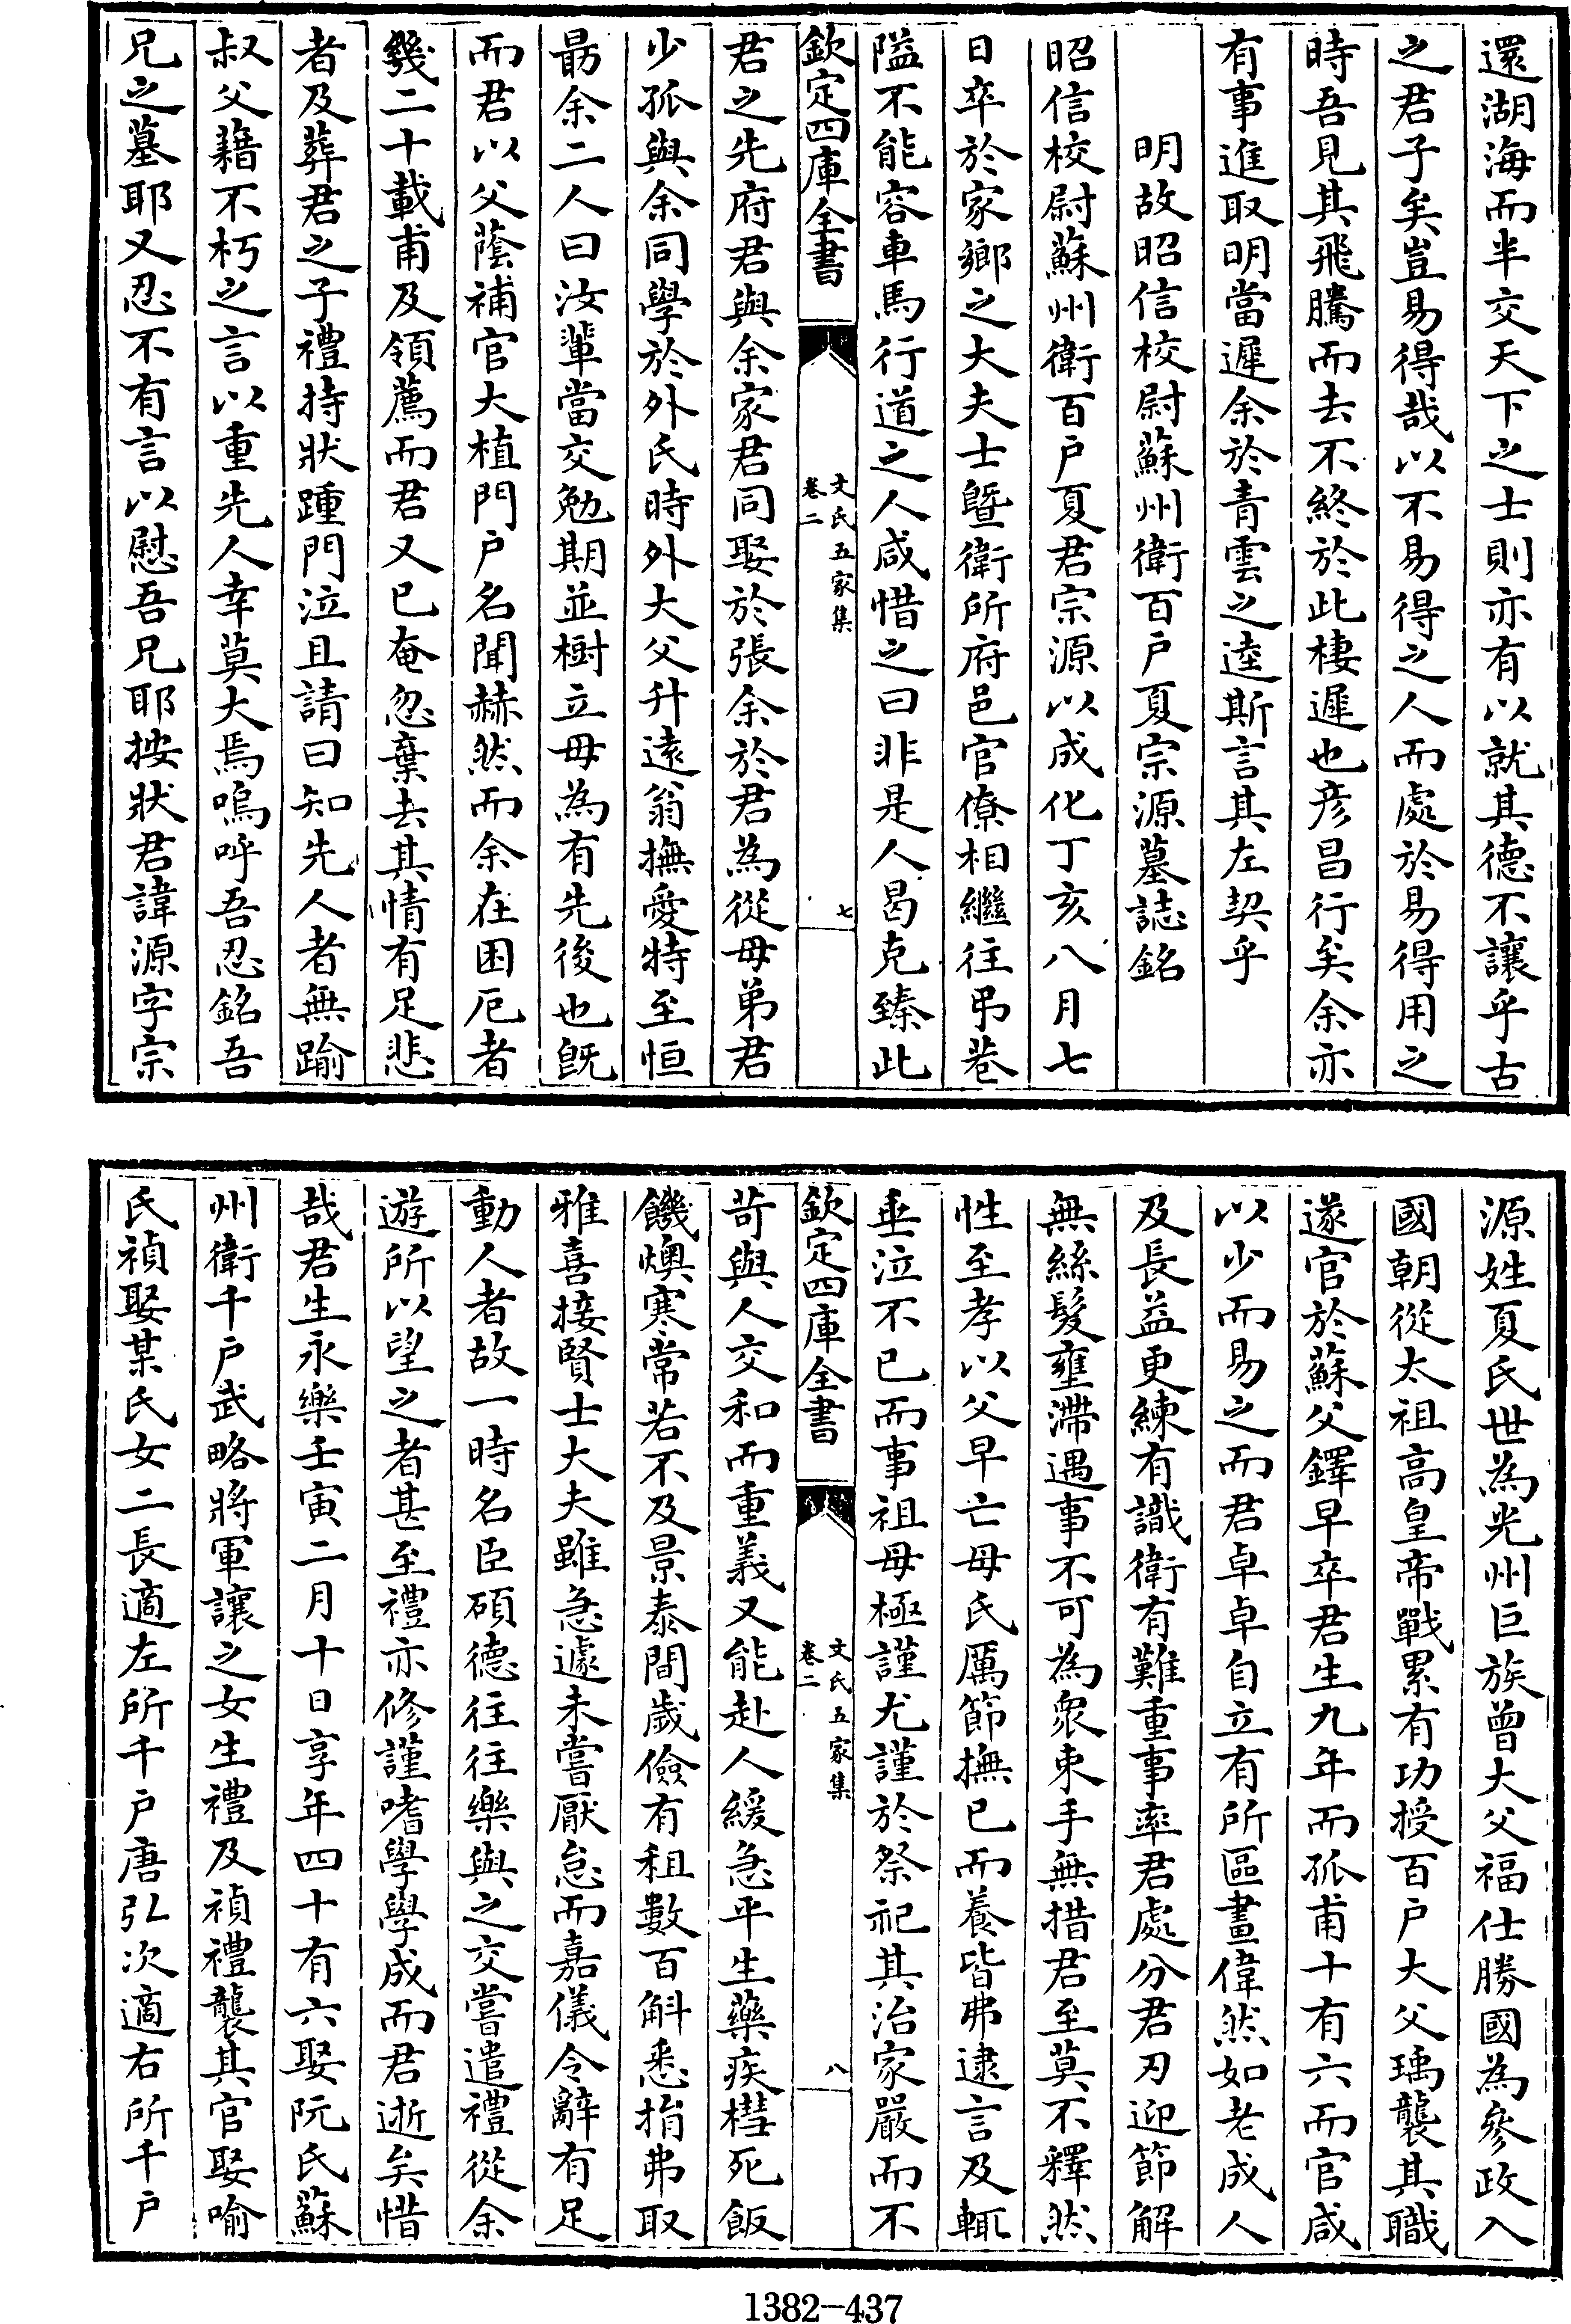 還湖海而半交天下之士則亦有以就其德不讓乎古
之君子矣豈易得哉以不易得之人而處於易得用之
時吾見其飛騰而去不終於此棲遲也彥昌行矣余亦
有事進取明當遲余於青雲之逵斯言其左契乎
明故昭信校尉蘇州衛百戶夏宗源墓誌銘
昭信校尉蘇州衛百戶夏君宗源以成化丁亥八月七
日卒於家鄉之大夫士暨衛所府邑官僚相繼往弔巷
隘不能容車馬行道之人咸惜之曰非是人曷克臻此
欽定四庫全書
文氏五家集
卷二
七
君之先府君與余家君同娶於張余於君為從母弟君
少孤與余同學於外氏時外大父升遠翁撫愛特至恒
朂余二人曰汝輩當交勉期並樹立毋為有先後也既
而君以父蔭補官大植門戶名聞赫然而余在困厄者
幾二十載甫及領薦而君又已奄忽棄去其情有足悲
者及葬君之子禮持狀踵門泣且請曰知先人者無踰
叔父藉不朽之言以重先人幸莫大焉嗚呼吾忍銘吾
兄之墓耶又忍不有言以慰吾兄耶按狀君諱源字宗
源姓夏氏世為光州巨族曾大父福仕勝國為參政入
國朝從太祖高皇帝戰累有功授百戶大父瑀襲其職
遂官於蘇父鐸早卒君生九年而孤甫十有六而官咸
以少而易之而君卓卓自立有所區畫偉然如老成人
及長益更練有識衛有難重事率君處分君刃迎節解
無絲髮壅滯遇事不可為衆束手無措君至莫不釋然
性至孝以父早亡母氏厲節撫己而養皆弗逮言及輒
垂泣不已而事祖母極謹尤謹於祭祀其治家嚴而不
欽定四庫全書
文氏五家集
卷二
八
苛與人交和而重義又能赴人緩急平生藥疾槥死飯
饑燠寒常若不及景泰間歲儉有租數百斛悉捐弗取
雅喜接賢士大夫雖急遽未嘗厭怠而嘉儀令辭有足
動人者故一時名臣碩德往往樂與之交嘗遣禮從余
遊所以望之者甚至禮亦修謹嗜學學成而君逝矣惜
哉君生永樂壬寅二月十日享年四十有六娶阮氏蘇
州衛千戶武略將軍讓之女生禮及禎禮襲其官娶喻
氏禎娶某氏女二長適左所千戶唐弘次適右所千戶
1382-437